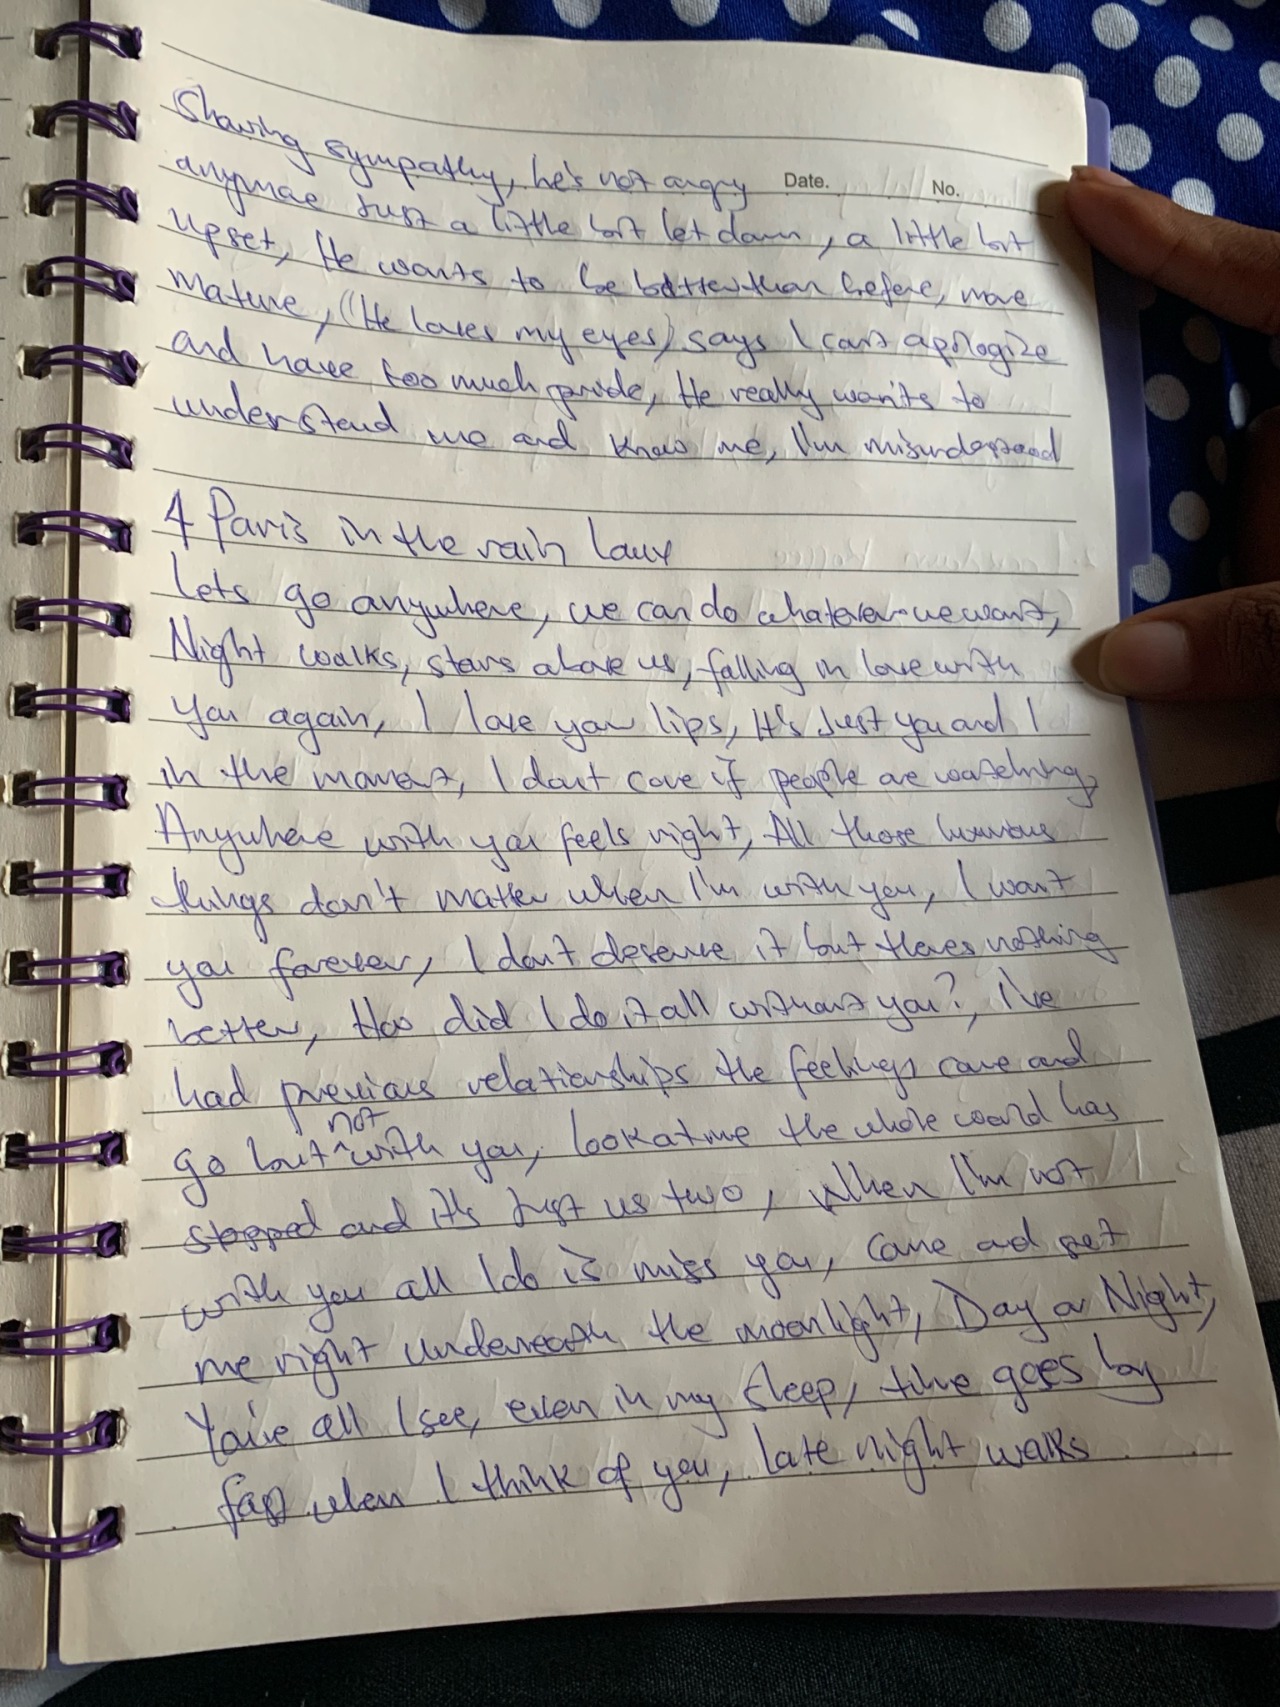 Showing sympathy, he's not angry Date. No.
anymae Just a little bit let down, a little bit
upset, He wants to be better than before, more
mature, (He loves my eyes) says I can't apologize
and have too much pride, He really wants to
understand me and know me, I'm misunderstood
4 Paris in the rain Lauv
Lets go anywhere, we can do whatever we want,
Night walks, stars above us, falling in love with
you again, I love your lips, It's Just you and I
in the moment, I dont care if people are watching,
Anywhere with you feels right, All those luxurious
things don't matter when I'm with you, I want
you forever, I don't deserve it but theres nothing
better, How did I do it all without you?, I've
had previous relationships the feelings come and
go but not with you, look at me the whole world has
stopped and it's Just us two, When I'm not
with you all I do is miss you, Come and get
me right underneath the moonlight, Day or Night,
You're all I see, even in my sleep, time goes by
fast when I think of you, late night walks